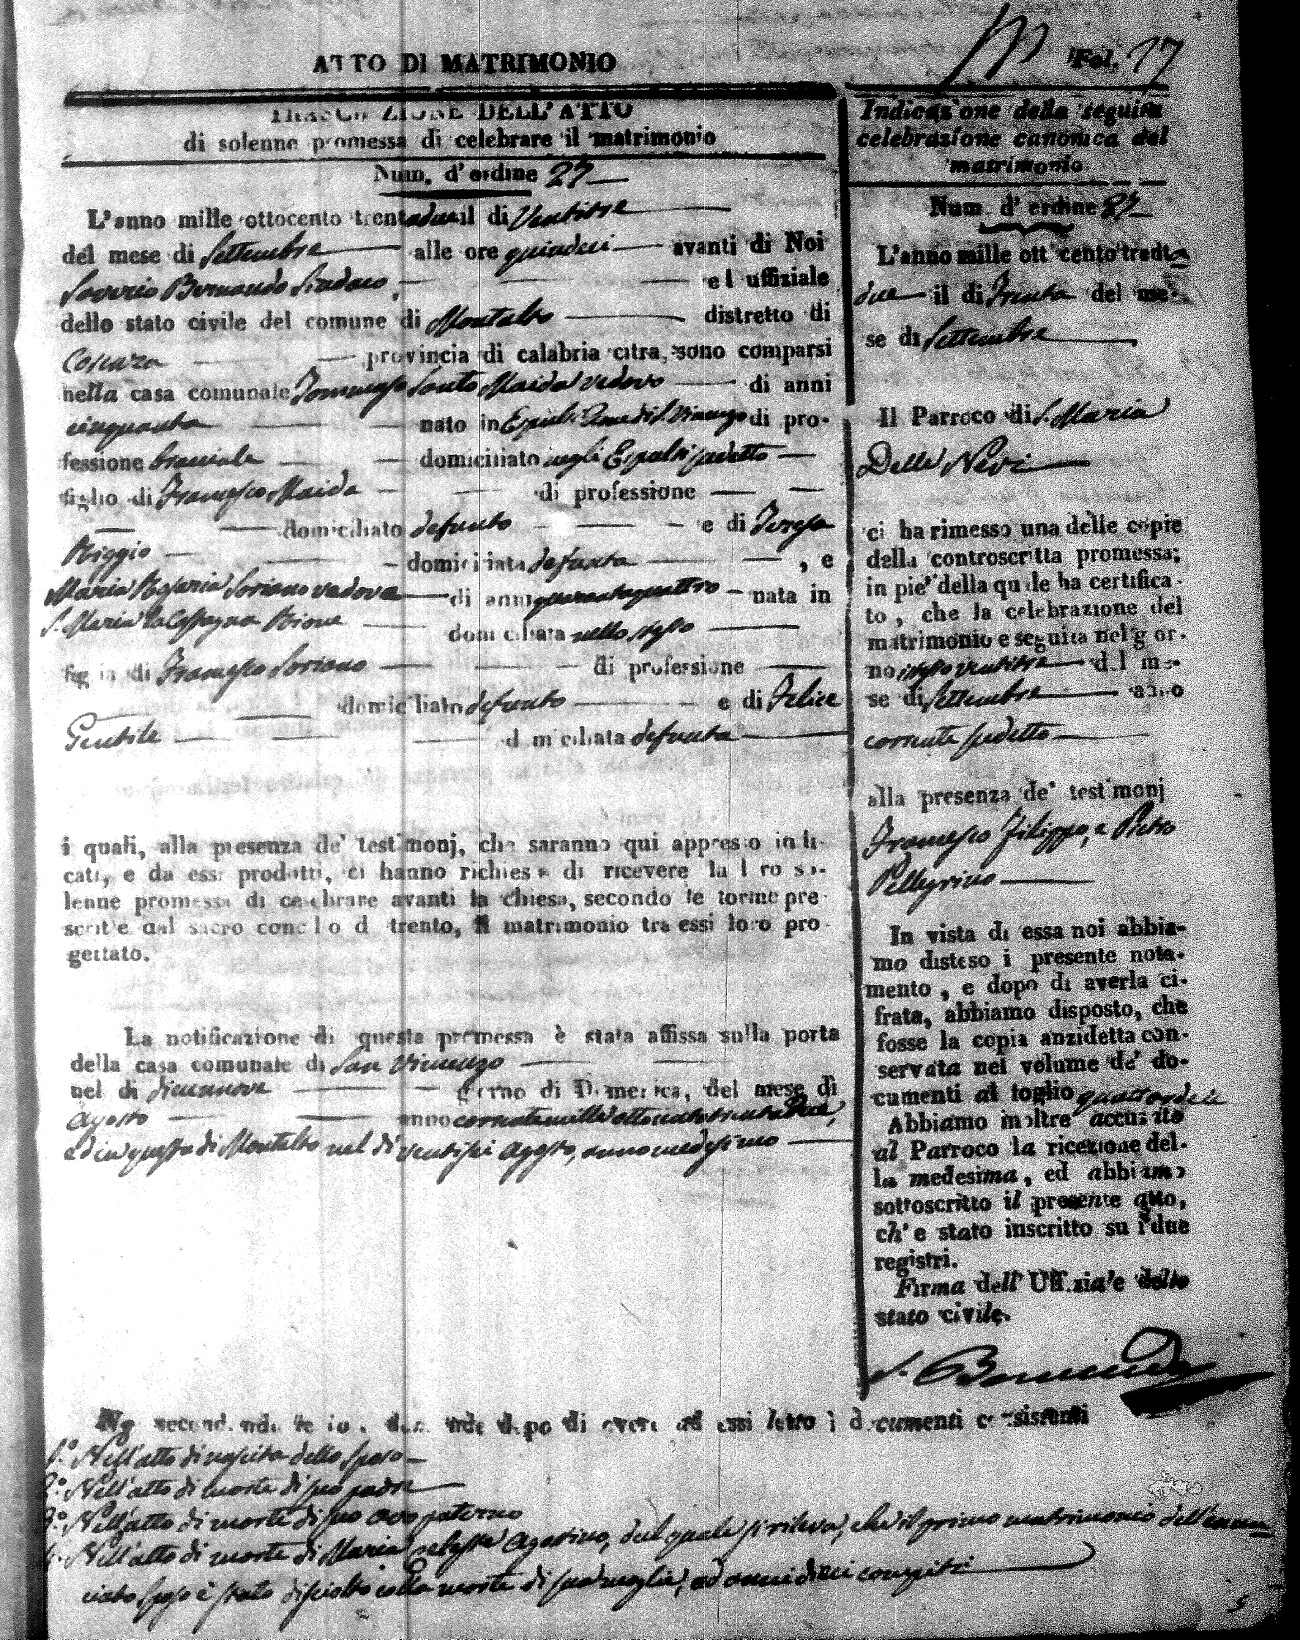 ATTO DI MATRIMONIO
Fol. 17
TRASCRIZIONE DELL'ATTO
di solenne promessa di celebrare il matrimonio
Num. d'ordine 27
L'anno mille ottocento trentadue il di Ventitre
del mese di Settembre alle ore quindeci avanti di Noi
Saverio Bernardo Sindaco, ed uffiziale
dello stato civile del comune di Montalto distretto di
Cosenza provincia di calabria citra, sono comparsi
nella casa comunale Tommaso Santo Maida vedovo di anni
cinquanta nato in di S. Vincenzo di pro-
fessione bracciale domiciliato negli
figlio di Francesco Maida di professione
domiciliato defunto e di Teresa
domiciliata defunta, e
Maria Rosaria Soriano vedova di anni quarantaquattro nata in
S. Maria la Castagna domiciliata nello stesso
figlia di Francesco Soriano di professione
domiciliato defunto e di Felice
Gentile domiciliata defunta
i quali, alla presenza de' testimonj, che saranno qui appresso indi-
cati, e da essi prodotti, ci hanno richiesto di ricevere la loro so-
lenne promessa di celebrare avanti la chiesa, secondo le forme pre-
scritte dal sacro concilio di trento, il matrimonio tra essi loro pro-
gettato.
La notificazione di questa promessa è stata affissa sulla porta
della casa comunale di San Vincenzo
nel di dicianove giorno di Domenica, del mese di
Agosto anno corrente mille ottocento trenta due,
ed in questa di Montalto nel di ventisei Agosto, anno medesimo
Noi secondando la loro domanda dopo di avere ad essi letto i documenti consistenti
1.° Nell'atto di nascita dello sposo
2.° Nell'atto di morte di suo padre
3.° Nell'atto di morte di suo avo paterno
4. Nell'atto di morte di Maria Agostino, dal quale si rileva, che il primo matrimonio dell'enun-
ciato sposo è stato disciolto colla morte di sua moglie, ad anni dieci compiti
Indicazione della seguita
celebrazione canonica del
matrimonio
Num. d'ordine 27
L'anno mille ottocento trenta
due il di Trenta del me-
se di Settembre
Il Parroco di S. Maria
Delle Nevi
ci ha rimesso una delle copie
della controscritta promessa;
in pie' della quale ha certifica-
to, che la celebrazione del
matrimonio e seguita nel gior-
no istesso ventitre del me-
se di Settembre anno
corrente sudetto
alla presenza de' testimonj
Francesco Filippo, e Pietro
Pellegrino
In vista di essa noi abbia-
mo disteso il presente nota-
mento, e dopo di averla ci-
frata, abbiamo disposto, che
fosse la copia anzidetta con-
servata nel volume de' do-
cumenti al foglio quattordeci
Abbiamo inoltre accusato
al Parroco la ricezione del-
la medesima, ed abbiamo
sottoscritto il presente atto,
ch'e stato inscritto su i due
registri.
Firma dell'Uffiziale dello
stato civile.
S. Bernardo